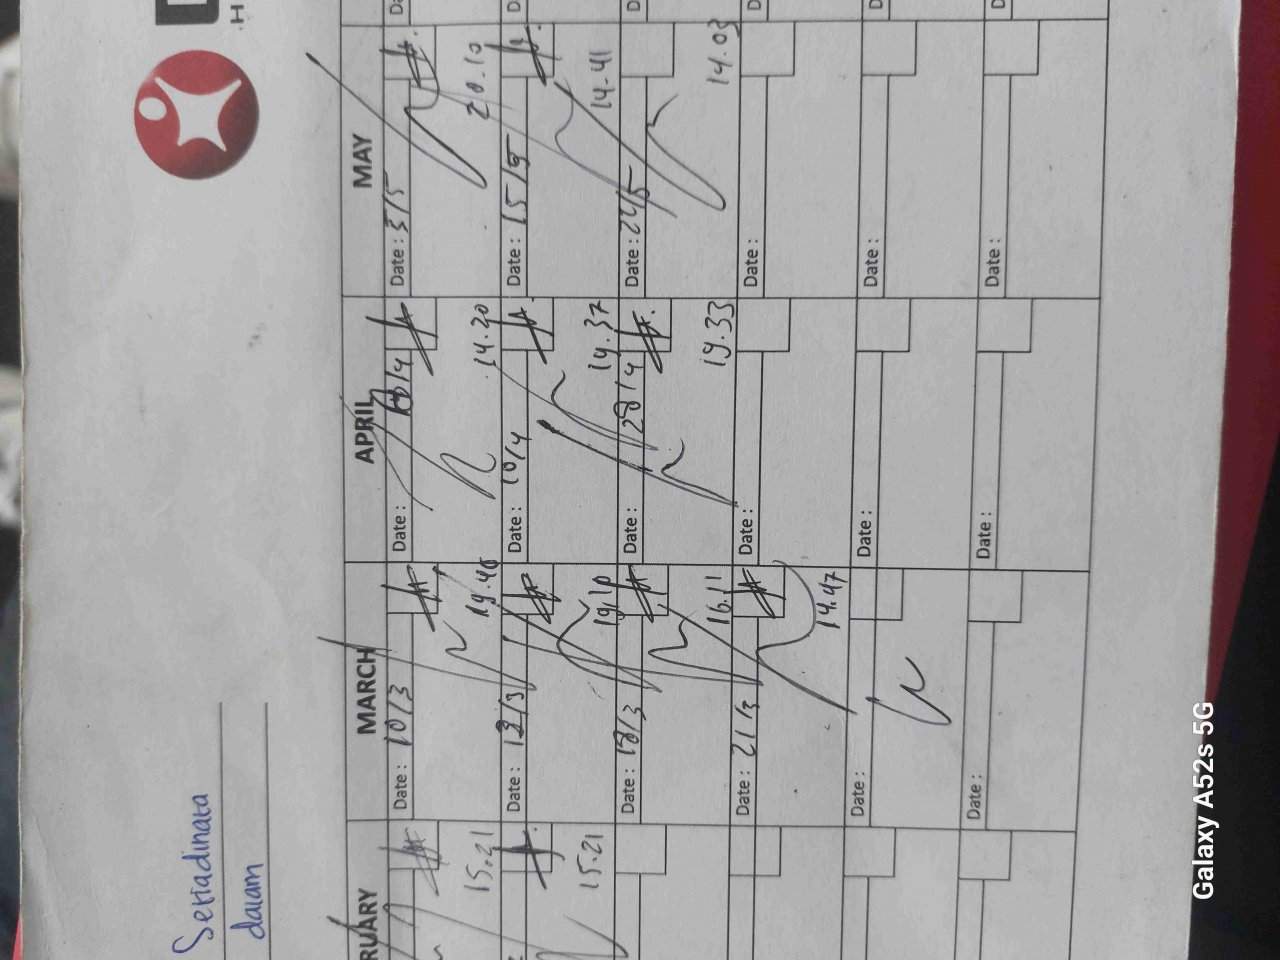 Setiadinata
dalam
RUARY
15.21
15.21
MARCH
Date : 10/3
19.46
Date : 12/3
19.10
Date : 18/3
16.11
Date : 21/3
14.47
Date :
Date :
APRIL
Date :
14.20
Date : 10/4
19.37
Date : 28/4
19.33
Date :
Date :
Date :
MAY
Date : 3/5
20.10
Date : 15/5
14.41
Date : 24/5
14.03
Date :
Date :
Date :
Galaxy A52s 5G